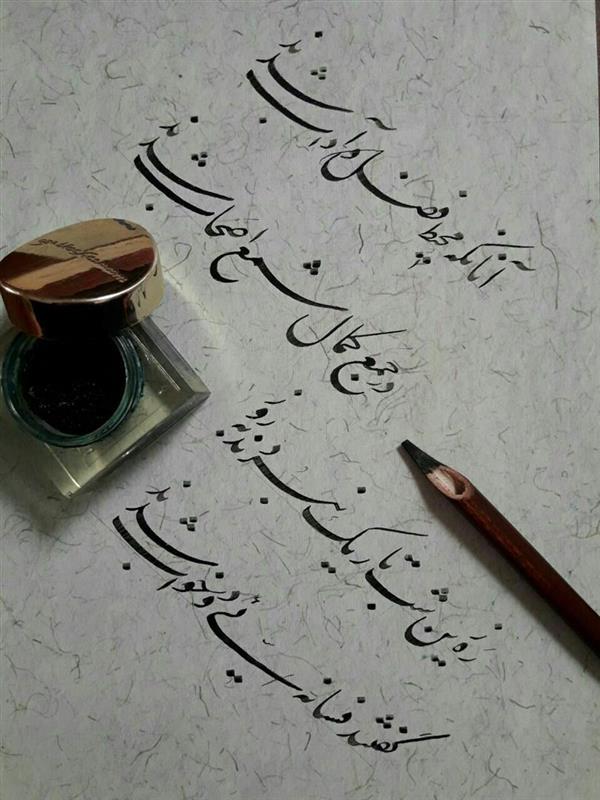 آنانکه محیط فضل و آداب شدند
در جمع کمال شمع اصحاب شدند
ره زین شب تاریک نبردند به روز
گفتند فسانه ئی و در خواب شدند